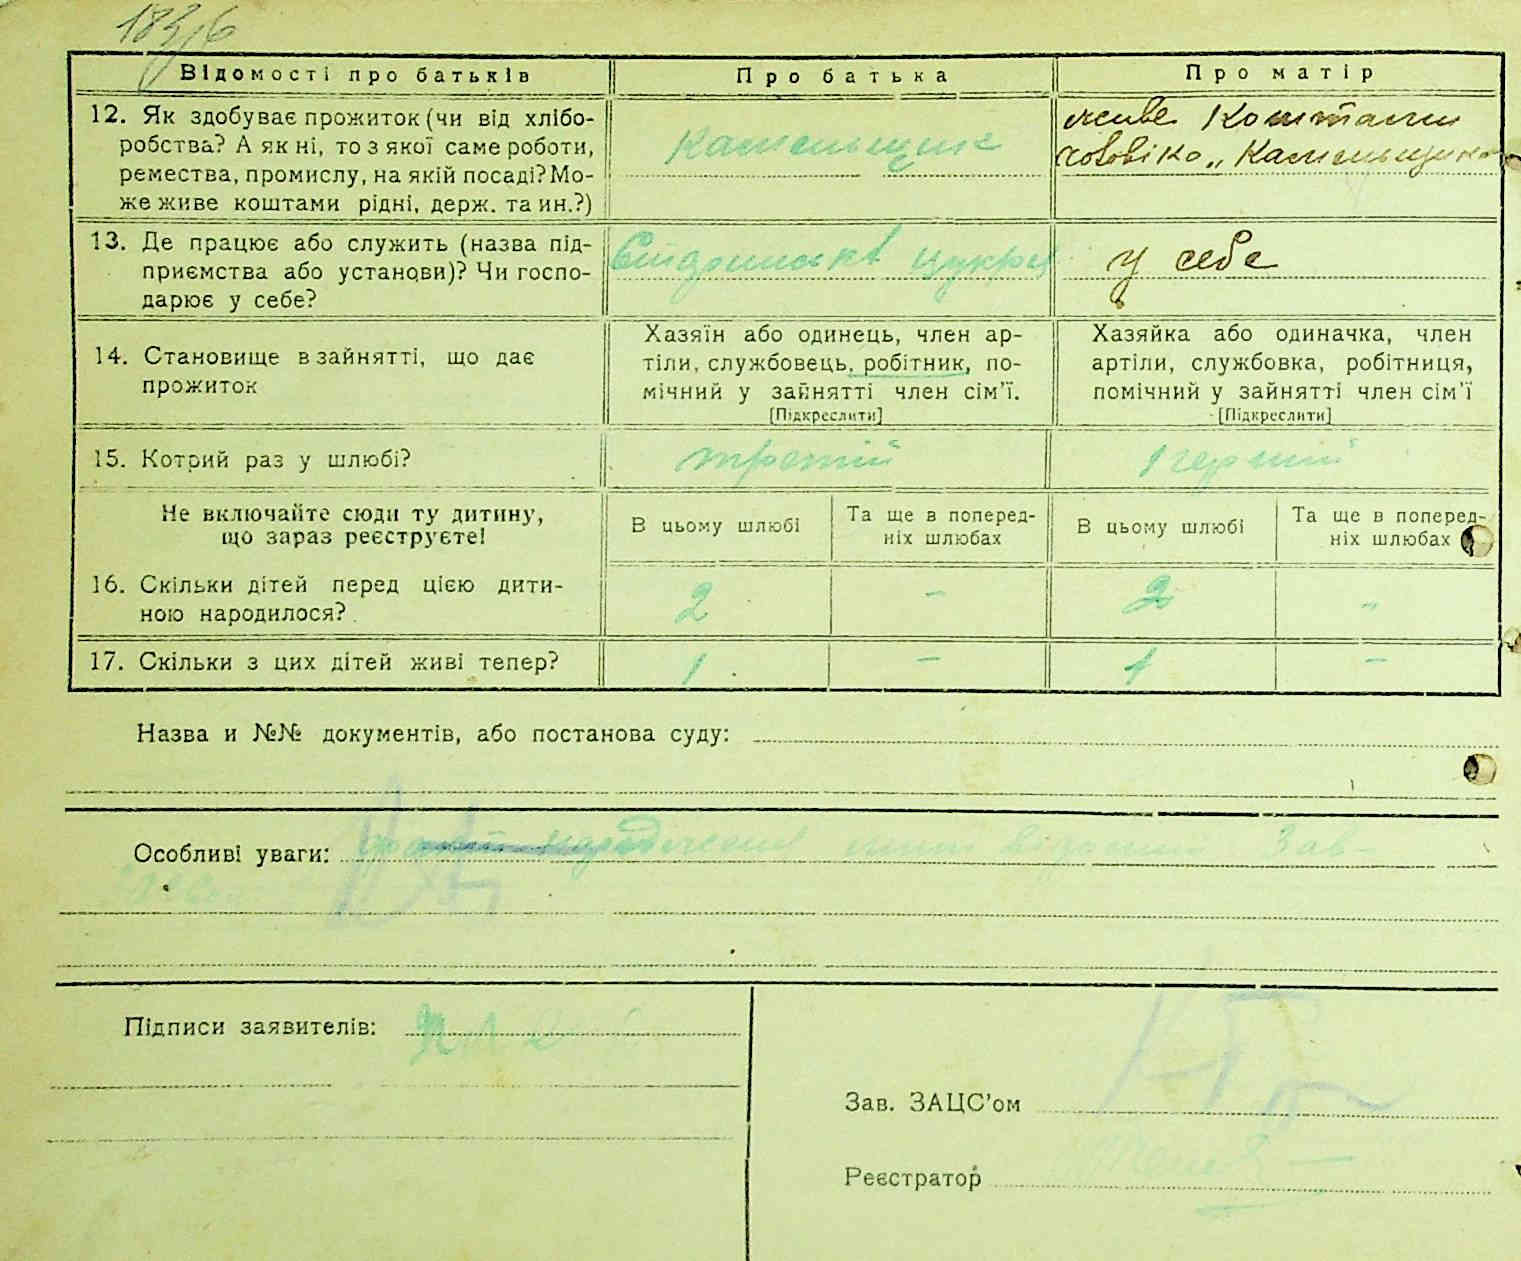 Відомості про батьків
Про батька
Про матір
12. Як здобуває прожиток (чи від хлібо-
робства? А як ні, то з якої саме роботи,
ремества, промислу, на якій посаді? Мо-
же живе коштами рідні, держ. та ин.?)
каменьщик
живе коштами
чоловіка „каменьщика
13. Де працює або служить (назва під-
приємства або установи)? Чи госпо-
дарює у себе?
у себе
14. Становище в зайнятті, що дає
прожиток
Хазяїн або одинець, член ар-
тіли, службовець, робітник, по-
мічний у зайнятті член сім'ї.
[Підкреслити]
Хазяйка або одиначка, член
артіли, службовка, робітниця,
помічний у зайнятті член сім'ї
[Підкреслити]
15. Котрий раз у шлюбі?
третій
Не включайте сюди ту дитину,
що зараз реєструєте!
В цьому шлюбі
Та ще в поперед-
ніх шлюбах
В цьому шлюбі
Та ще в поперед-
ніх шлюбах
16. Скільки дітей перед цією дити-
ною народилося?
2
-
2
-
17. Скільки з цих дітей живі тепер?
1
-
1
-
Назва и №№ документів, або постанова суду:
Особливі уваги:
Підписи заявителів:
Зав. ЗАЦС'ом
Реєстратор